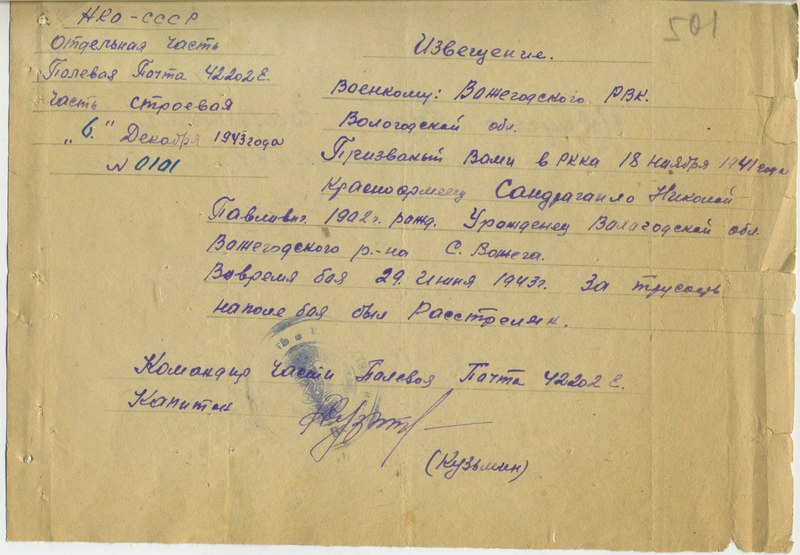 НКО-СССР
Отдельная часть
Полевая Почта 42202 Е.
часть строевая
"6." Декабря 1943 года
№ 0101
102
Извещение.
Военкому: Вожегодского РВК.
Вологодской обл.
Призваный Вами в РККА 18 ноября 1941 года
красноармеец Сандрагайло Николай
Павлович. 1902 г. рожд. Урожденец Валагодской обл.
Вожегодского р.-на С. Вожега.
Вовремя боя 29. Июня 1943 г. За трусость
наполе боя был Расстрелян.
Командир части Полевая Почта 42202 Е.
Капитан
(Кузьмин)